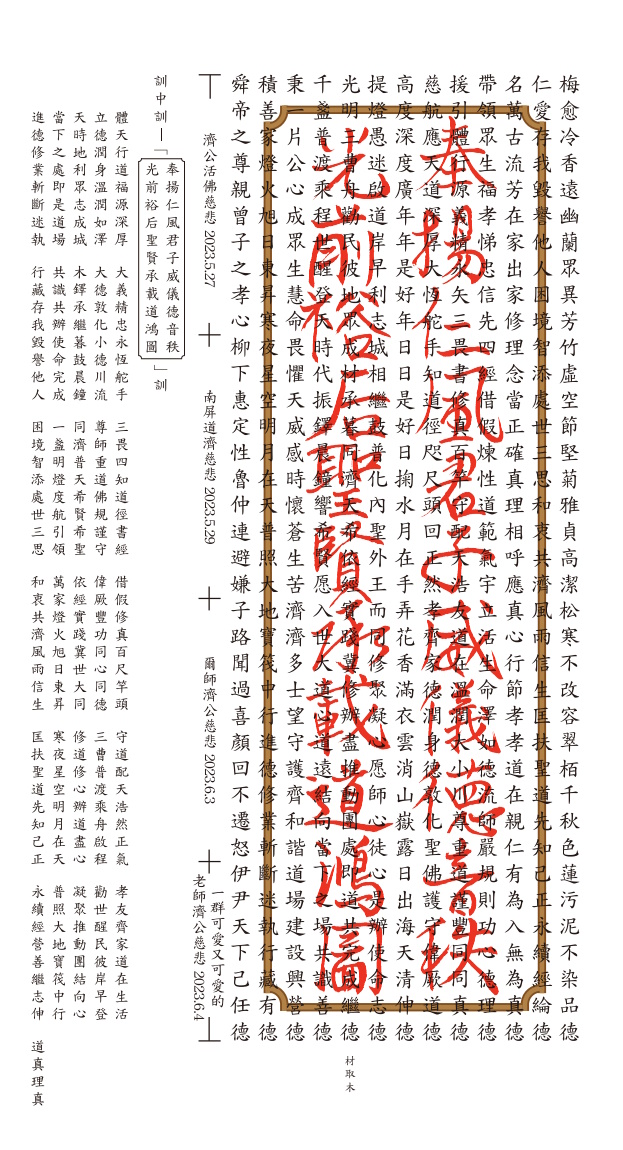 梅愈冷香遠幽蘭眾異芳竹虛空節堅菊雅貞高潔松寒不改容翠栢千秋色蓮污泥不染品德
仁愛存我毀譽他人困境智添處世三思和衷共濟風雨信生匡扶聖道先知己正永續經綸德
名萬古流芳在家出家修理念當正確真理相呼應真心行節孝孝道在親仁有為入無為真德
帶領眾生福孝悌忠信先四經借假煉性道範氣宇立活生命澤如德流師嚴規則功心德理德
援引體行源義精永矢三畏書修真百竿守配天浩友道在溫潤大小川尊重道謹豐同同真德
慈航應天道深厚大恆舵手知道徑咫尺頭回正然孝齊家德潤身德敦化聖佛護守偉厥道德
高度深度廣年年是好年日日是好日掬水月在手弄花香滿衣雲消山嶽露日出海天清伸德
提燈愚迷啟道岸早利志城相繼鼓普化內聖外王而同修聚凝心愿師心徒心是辦使命志德
光明三曹舟勸民彼地眾成材承暮同濟天希依經實踐冀修辦盡推動團處即道共完成繼德
千盞普渡乘程世醒登天時代振鐸晨鐘響希賢愿入世大道心道遠結向當下之場共識善德
秉一片公心成眾生慧命畏懼天威感時懷蒼生苦濟濟多士望守護齊和諧道場建設興營德
積善家燈火旭日東昇寒夜星空明月在天普照大地寶筏中行進德修業斬斷迷執行藏有德
舜帝之尊親曾子之孝心柳下惠定性魯仲連避嫌子路聞過喜顏回不遷怒伊尹天下己任德
奉揚仁風君子威儀德音秩
光前裕后聖賢承載道鴻圖
材取木
濟公活佛慈悲 2023.5.27
南屏道濟慈悲 2023.5.29
爾師濟公慈悲 2023.6.3
一群可愛又可愛的
老師濟公慈悲 2023.6.4
訓中訓—「
奉揚仁風君子威儀德音秩
光前裕后聖賢承載道鴻圖
」訓
體天行道福源深厚 大義精忠永恆舵手 三畏四知道徑書經 借假修真百尺竿頭 守道配天浩然正氣 孝友齊家道在生活
立德潤身溫潤如澤 大德敦化小德川流 尊師重道佛規謹守 偉厥豐功同心同德 三曹普渡乘舟啟程 勸世醒民彼岸早登
天時地利眾志成城 木鐸承繼暮鼓晨鐘 同濟普天希賢希聖 依經實踐冀世大同 修道修心辦道盡心 凝聚推動團結向心
當下之處即是道場 共識共辦使命完成 一盞明燈度航引領 萬家燈火旭日東昇 寒夜星空明月在天 普照大地寶筏中行
進德修業斬斷迷執 行藏存我毀譽他人 困境智添處世三思 和衷共濟風雨信生 匡扶聖道先知己正 永續經營善繼志伸 道真理真